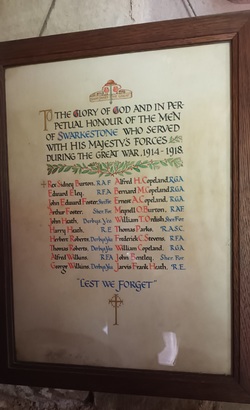 TO THE GLORY OF GOD AND IN PER-
PETUAL HONOUR OF THE MEN
OF SWARKESTONE WHO SERVED
WITH HIS MAJESTY'S FORCES
DURING THE GREAT WAR, 1914-1918.
Rev Sidney Barson. R.A.F. Alfred H. Copeland. R.G.A.
Edward Eley. R.F.A. Bernard M. Copeland. R.G.A.
John Edward Foster. Ernest A. Copeland. R.G.A.
Arthur Foster. Sher For Meynell O. Burton. R.A.F.
John Heath. Derbys Yeo William T. Orditch. Sher For
Harry Heath. R.E. Thomas Parks. R.A.S.C.
Herbert Roberts. Derbys Yeo Frederick C. Stevens. R.F.A.
Thomas Roberts. Derbys Yeo William Copeland. R.G.A.
Alfred Williams. R.F.A. John Bentley. Sher For
George Williams. Derbys Yeo Jarvis Frank Heath. R.E.
"LEST WE FORGET"